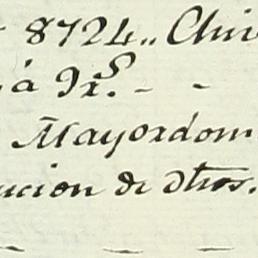 8724,, Chi
á 9rs. - -
Mayordom
ucion de dhos.